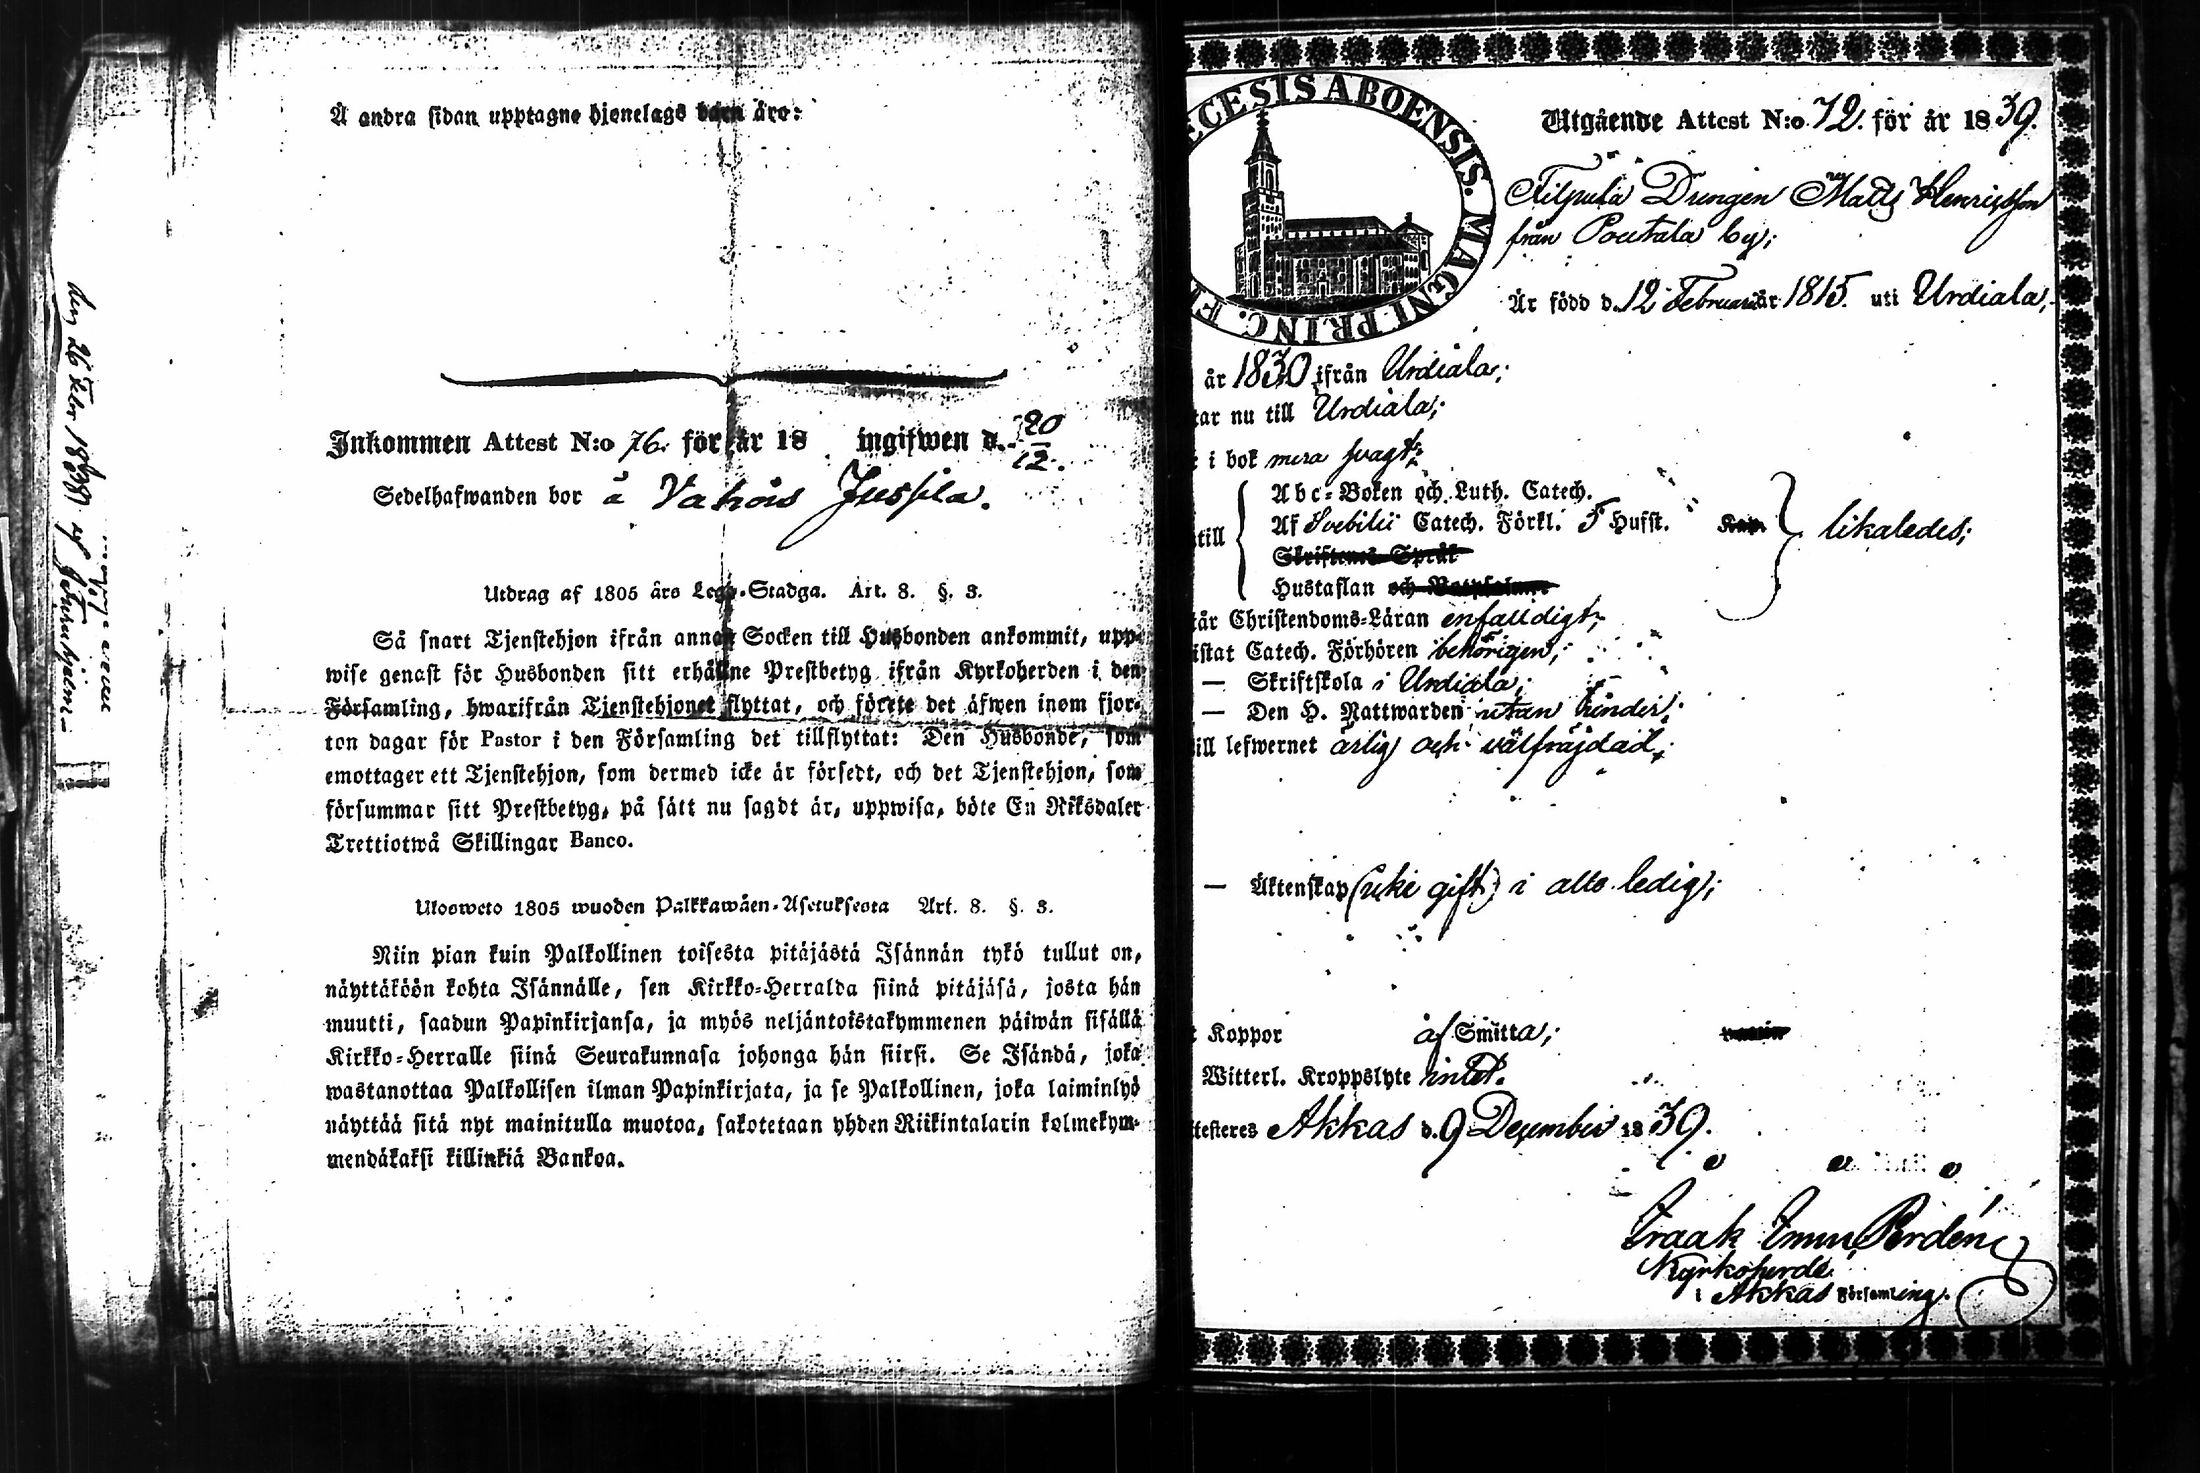 Å andra sidan upptagne hjonelags barn äro:
Inkommen Attest N:o 76. för år 18 ingifwen d. 20/12.
Sedelhafwanden bor å Vahois Jussila.
Utdrag af 1805 års Lego-Stadga. Art. 8. §. 3.
Så snart Tjenstehjon ifrån annan Socken till Husbonden ankommit, upp-
wise genast för Husbonden sitt erhållne Prestbetyg ifrån Kyrkoherden i den
Församling, hwarifrån Tjenstehjonet flyttat, och förete det äfwen inom fjor-
ton dagar för Pastor i den Församling det tillflyttat: Den Husbonde, som
emottager ett Tjenstehjon, som dermed icke är försedt, och det Tjenstehjon, som
försummar sitt Prestbetyg, på sätt nu sagdt är, uppwisa, böte En Riksdaler
Trettiotwå Skillingar Banco.
Ulosweto 1805 wuoden Palkkawäen-Asetuksesta Art. 8. §. 3.
Niin pian kuin Palkollinen toisesta pitäjästä Isännän tykö tullut on,
näyttäköön kohta Isännälle, sen Kirkko-Herralda siinä pitäjäsä, josta hän
muutti, saadun Papinkirjansa, ja myös neljäntoistakymmenen päiwän sisällä
Kirkko-Herralle siinä Seurakunnasa johonga hän siirsi. Se Isändä, joka
wastanottaa Palkollisen ilman Papinkirjata, ja se Palkollinen, joka laiminlyö
näyttää sitä nyt mainitulla muotoa, sakotetaan yhden Riikintalarin kolmekym-
mendäkaksi killinkiä Bankoa.
DIOECESIS ABOENSIS. MAGNI PRINC. F
Utgående Attest N:o 72. för år 1839.
Drengen Matts Henricsson
från Poutala by;
Är född d. 12 Februari år 1815. uti Urdiala;
år 1830 ifrån Urdiala;
tar nu till Urdiala;
i bok mera svagt;
Abc-Boken och Luth. Catech.
Af Svebilii Catech. Förkl. 5 Hufst. Kap. likaledes;
till
Skriftenes Språk
Hustaflan och Botpsalmer
tår Christendoms-Läran enfaldigt;
istat Catech. Förhören behörigen;
— Skriftskola i Urdiala;
— Den H. Nattwarden utan hinder;
ill lefwernet ärlig och välfräjdad;
— Äktenskap (icke gift) i allo ledig;
Koppor af Smitta;
Witterl. Kroppslyte intet.
testeres Akkas d. 9 December 1839.
Isaak Eman.
Kyrkoherde
i Akkas Församling.